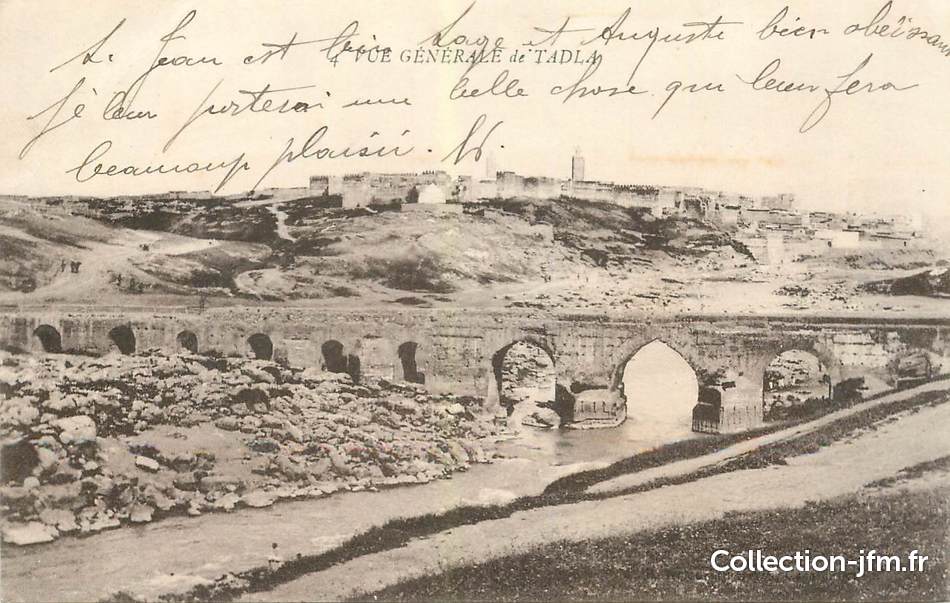 S. Jean est bien sage et Auguste bien obéïssant
4 VUE GÉNÉRALE de TADLA
je leur porterai une belle chose qui leur fera
beaucoup plaisir.
Collection-jfm.fr